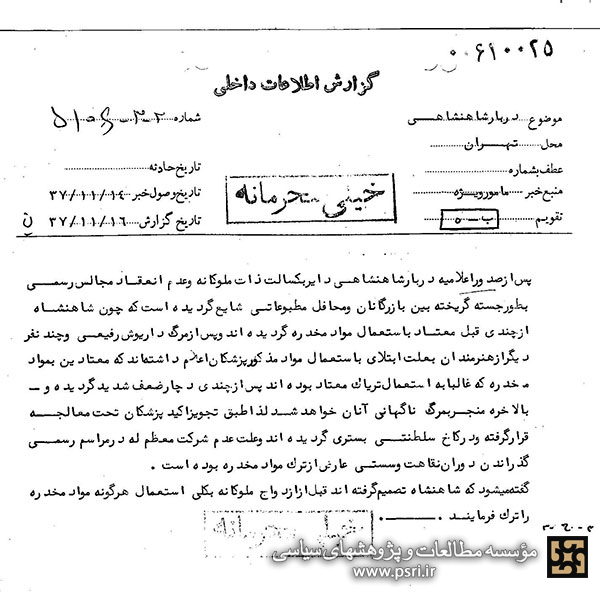 ۰۰۶۱۰۰۲۵
گزارش اطلاعات داخلی
موضوع دربار شاهنشاهی
شماره
محل تهران
عطف بشماره
تاریخ حادثه
منبع خبر مامور ویژه
تاریخ وصول خبر ۳۷/۱۱/۱۴
خیلی محرمانه
تقویم ب - ۵
تاریخ گزارش ۳۷/۱۱/۱۶
پس از صدور اعلامیه دربار شاهنشاهی دایر بکسالت ذات ملوکانه وعدم انعقاد مجالس رسمی
بطور جسته گریخته بین بازرگانان ومحافل مطبوعاتی شایع گردیده است که چون شاهنشاه
از چندی قبل معتاد باستعمال مواد مخدره گردیده اند وپس از مرگ داریوش رفیعی وچند نفر
دیگر از هنرمندان بعلت ابتلای باستعمال مواد مذکور پزشکان اعلام داشته اند که معتادین بمواد
مخدره که غالبا به استعمال تریاک معتاد بوده اند پس از چندی دچار ضعف شدید گردیده و -
بالاخره منجر بمرگ ناگهانی آنان خواهد شد لذا طبق تجویز اکید پزشکان تحت معالجه
قرار گرفته ودر کاخ سلطنتی بستری گردیده اند وعلت عدم شرکت معظم له در مراسم رسمی
گذراندن دوران نقاهت وسستی عارض از ترک مواد مخدره بوده است .
گفته میشود که شاهنشاه تصمیم گرفته اند قبل از ازدواج ملوکانه بکلی استعمال هرگونه مواد مخدره
را ترک فرمایند .
خیلی محرمانه
مؤسسه مطالعات و پژوهشهای سیاسی
www.psri.ir